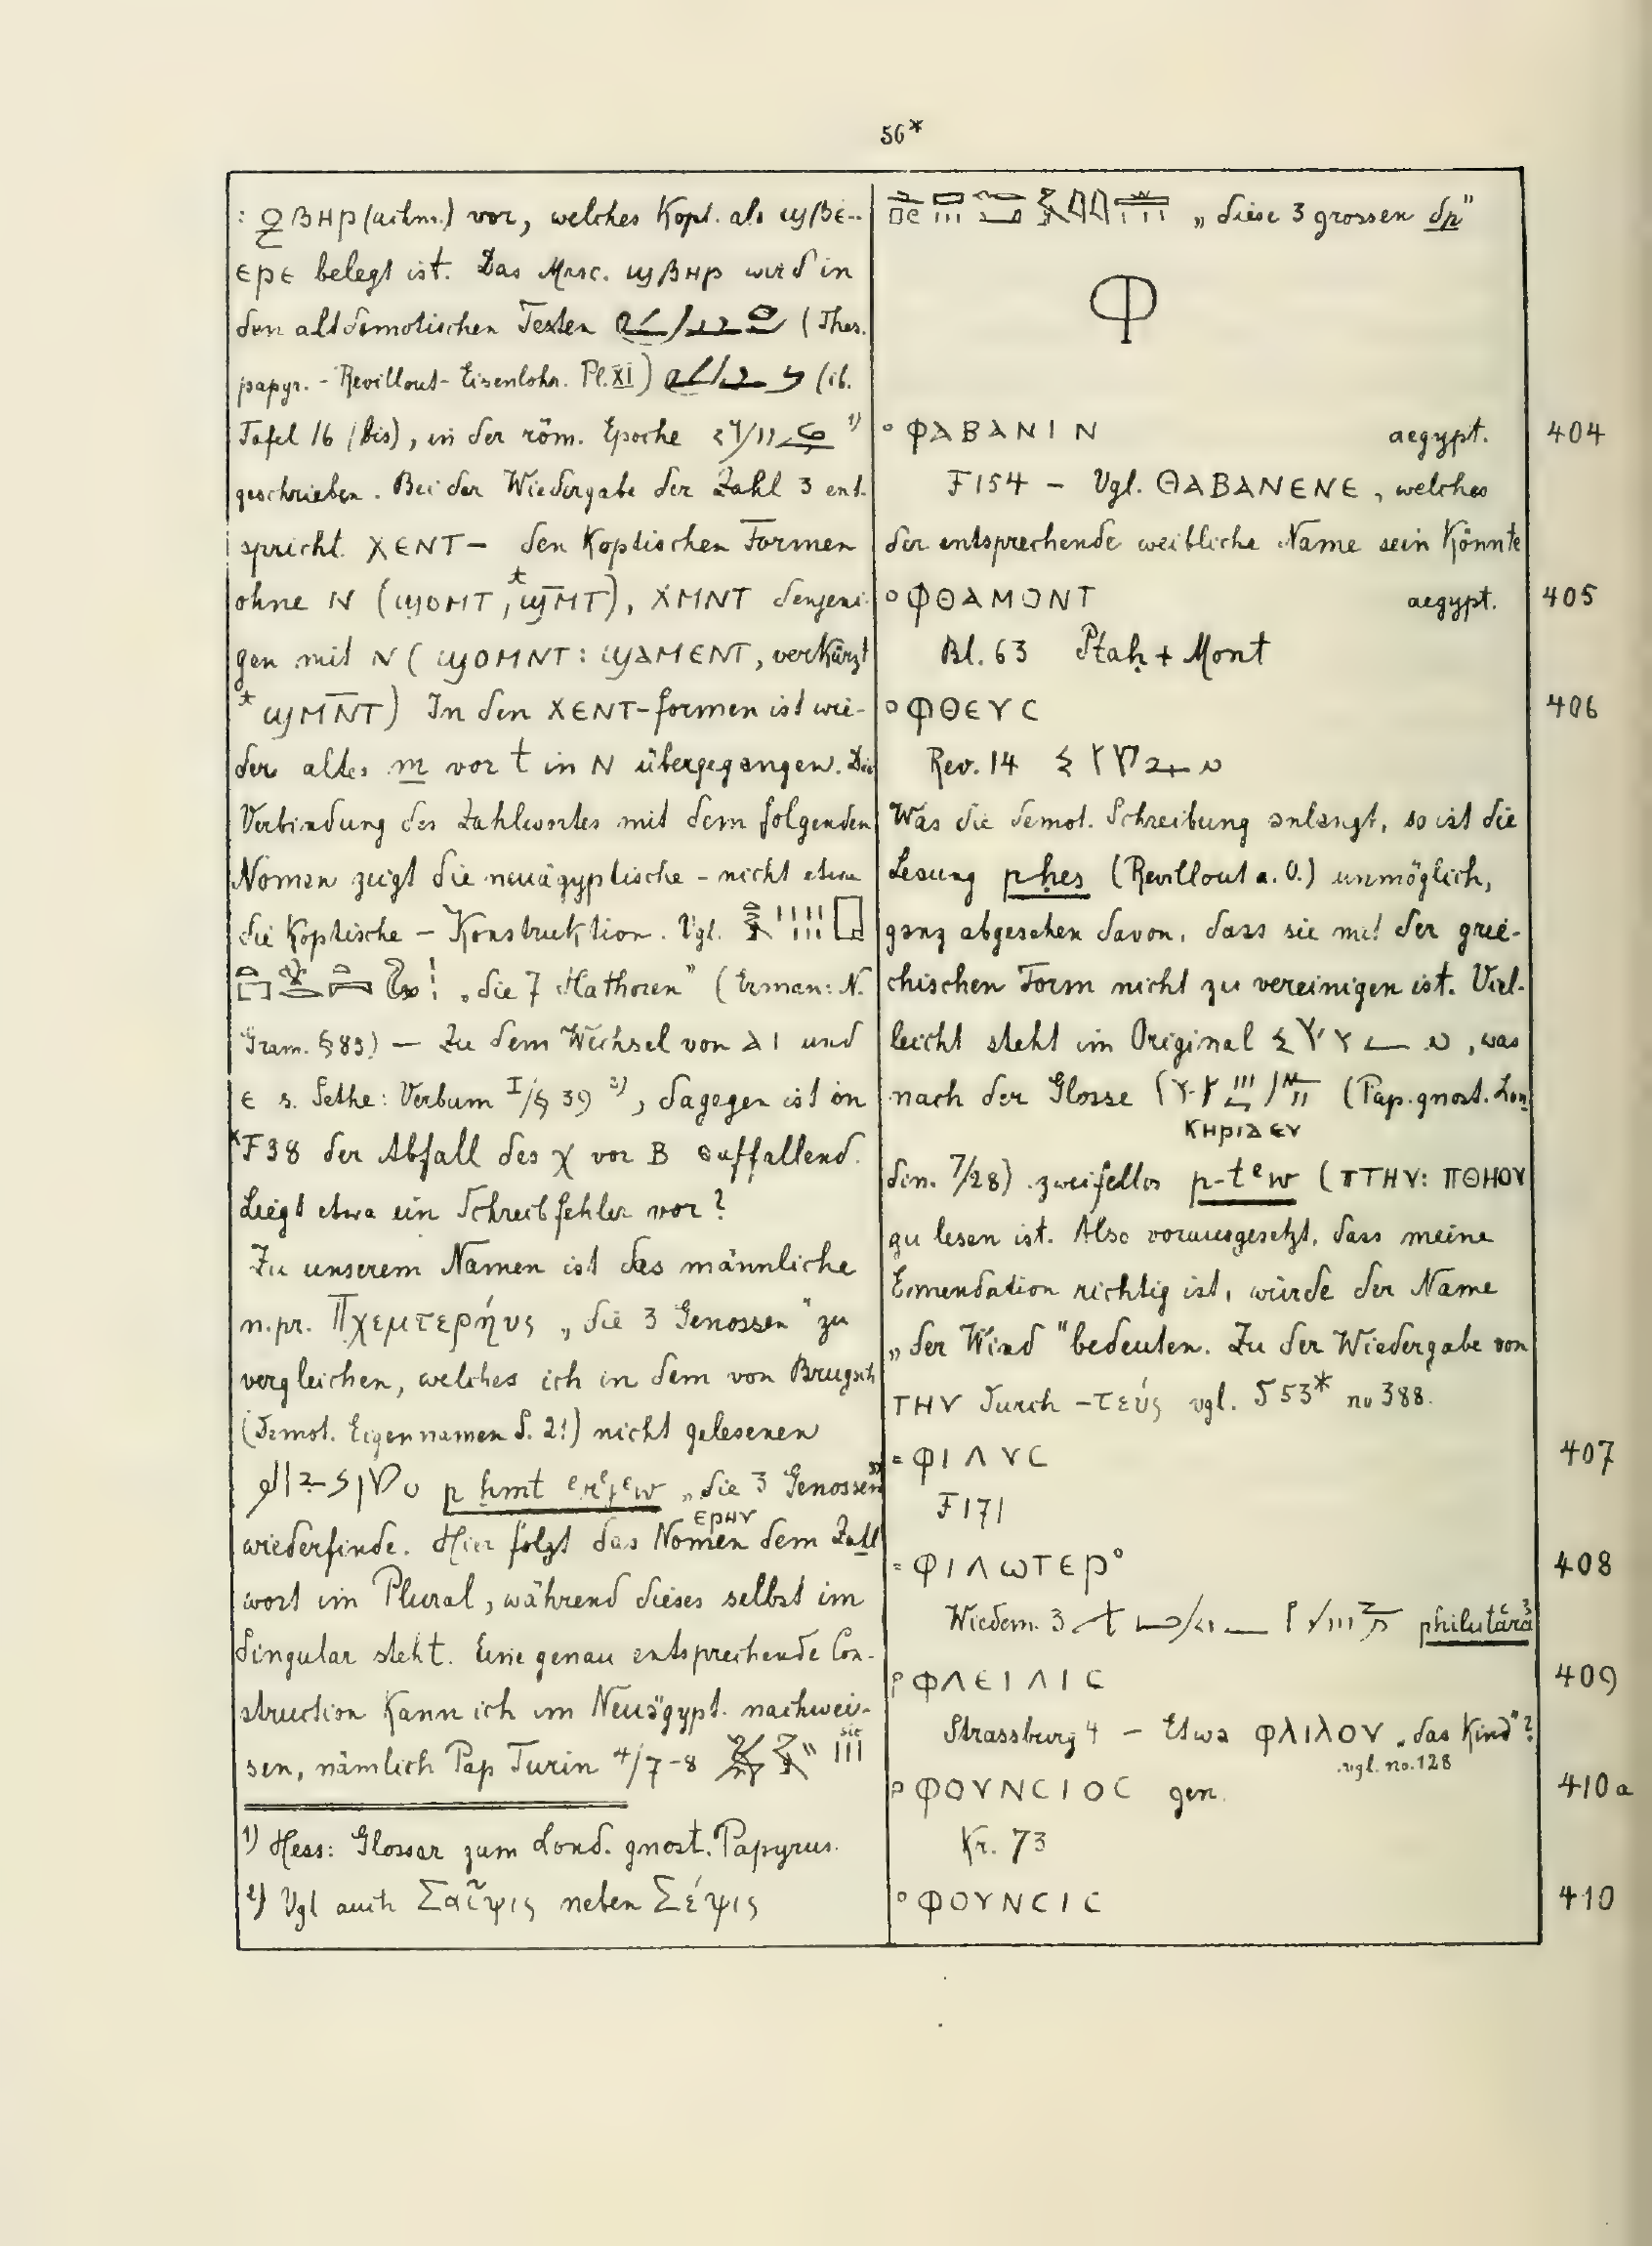 56*
: ϩⲂⲎⲢ (achm.) vor, welches Kopt. als ϣⲂⲈ-
ⲈⲢⲈ belegt ist. Das Masc. ϣⲂⲎⲢ wird in
den altdemotischen Texten (Thes.
papyr. - Revillout - Eisenlohr. Pl. XI) (ib.
Tafel 16 (bis), in der röm. Epoche ¹)
geschrieben. Bei der Wiedergabe der Zahl 3 ent-
spricht ΧΕΝΤ- den Koptischen Formen
ohne N (ϣⲞⲘⲦ, *ϣⲘ̅Ⲧ), ΧΜΝΤ denjeni-
gen mit N (ϣⲞⲘⲚⲦ : ϣⲀⲘⲈⲚⲦ, verkürzt
*ϣⲘ̅Ⲛ̅Ⲧ) In den ΧΕΝΤ-formen ist wie-
der altes m vor t in N übergegangen. Die
Verbindung des Zahlwortes mit dem folgenden
Nomen zeigt die neuägyptische - nicht etwa
die Koptische - Konstruktion. Vgl.
„die 7 Hathoren" (Erman: N.
Gram. § 83) — Zu dem Wechsel von ΑΙ und
Ε s. Sethe: Verbum I/§ 39 ²), dagegen ist in
*F38 der Abfall des χ vor Β auffallend.
Liegt etwa ein Schreibfehler vor?
Zu unserem Namen ist das männliche
n.pr. Πχεμτερήυς „die 3 Genossen" zu
vergleichen, welches ich in dem von Brugsch
(Demot. Eigennamen S. 21) nicht gelesenen
p ḫmt „die 3 Genossen"
ⲈⲢⲎⲨ
wiederfinde. Hier folgt das Nomen dem Zahl
wort im Plural, während dieses selbst im
Singular steht. Eine genau entsprechende Con-
struction Kann ich im Neuägypt. nachwei-
sen, nämlich Pap Turin 4/7-8
sic
1) Hess: Glossar zum Lond. gnost. Papyrus.
2) Vgl auch Σαῖψις neben Σέψις
„diese 3 grossen dp"
Φ
° ΦΑΒΑΝΙΝ aegypt. 404
F154 - Vgl. ΘΑΒΑΝΕΝΕ, welches
der entsprechende weibliche Name sein Könnte
° ΦΘΑΜΟΝΤ aegypt. 405
Bl. 63 Ptaḥ + Mont
° ΦΘΕΥΣ 406
Rev. 14
Was die demot. Schreibung anlangt, so ist die
Lesung pḥes (Revillout a. O.) unmöglich,
ganz abgesehen davon, dass sie mit der grie-
chischen Form nicht zu vereinigen ist. Viel-
leicht steht im Original , was
nach der Glosse (Pap. gnost. Lon
ⲔⲎⲢⲒⲆⲈⲨ
din. 7/28) zweifellos p-tᵉw (ⲠⲦⲎⲨ: ⲠⲐⲎⲞⲨ
zu lesen ist. Also vorausgesetzt, dass meine
Emendation richtig ist, würde der Name
„der Wind" bedeuten. Zu der Wiedergabe von
ⲦⲎⲨ durch -τεύς vgl. S 53* no 388.
= ΦΙΛΥC 407
F171
= ΦΙΛωΤΕΡ° 408
Wiedem. 3
° ΦΛΕΙΛΙC 409
Strassburg 4 - Etwa ⲫⲗⲓⲗⲟⲩ „das Kind"?
vgl. no. 128
° ΦΟΥΝCΙΟC gen. 410a
Kr. 73
° ΦΟΥΝCΙC 410